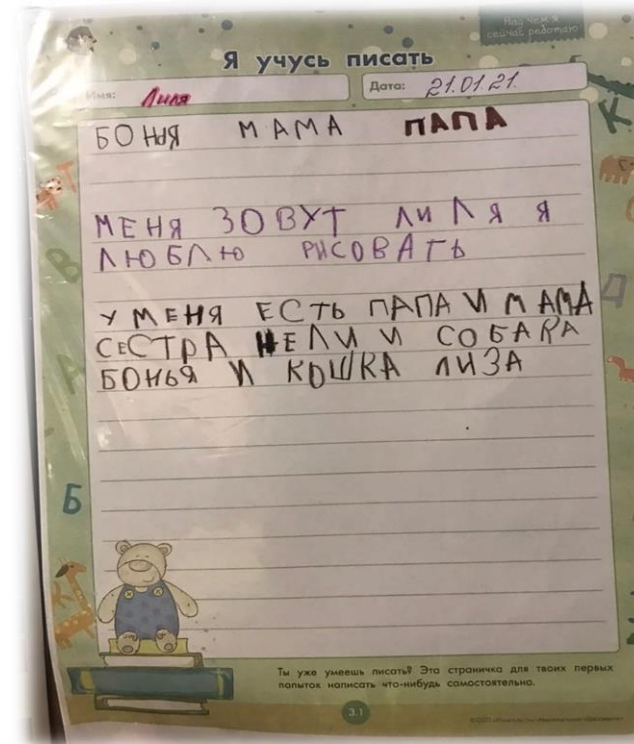 Над чем я
сейчас работаю
Я учусь писать
Имя: Лиля
Дата: 21.01.21.
БОНЬЯ МАМА ПАПА
МЕНЯ ЗОВУТ ЛИЛЯ Я
ЛЮБЛЮ РИСОВАТЬ
У МЕНЯ ЕСТЬ ПАПА И МАМА
СЕСТРА НЕЛИ И СОБАКА
БОНЬЯ И КОШКА ЛИЗА
К
Т
В
Д
А
Б
Ты уже умеешь писать? Эта страничка для твоих первых
попыток написать что-нибудь самостоятельно.
3.1